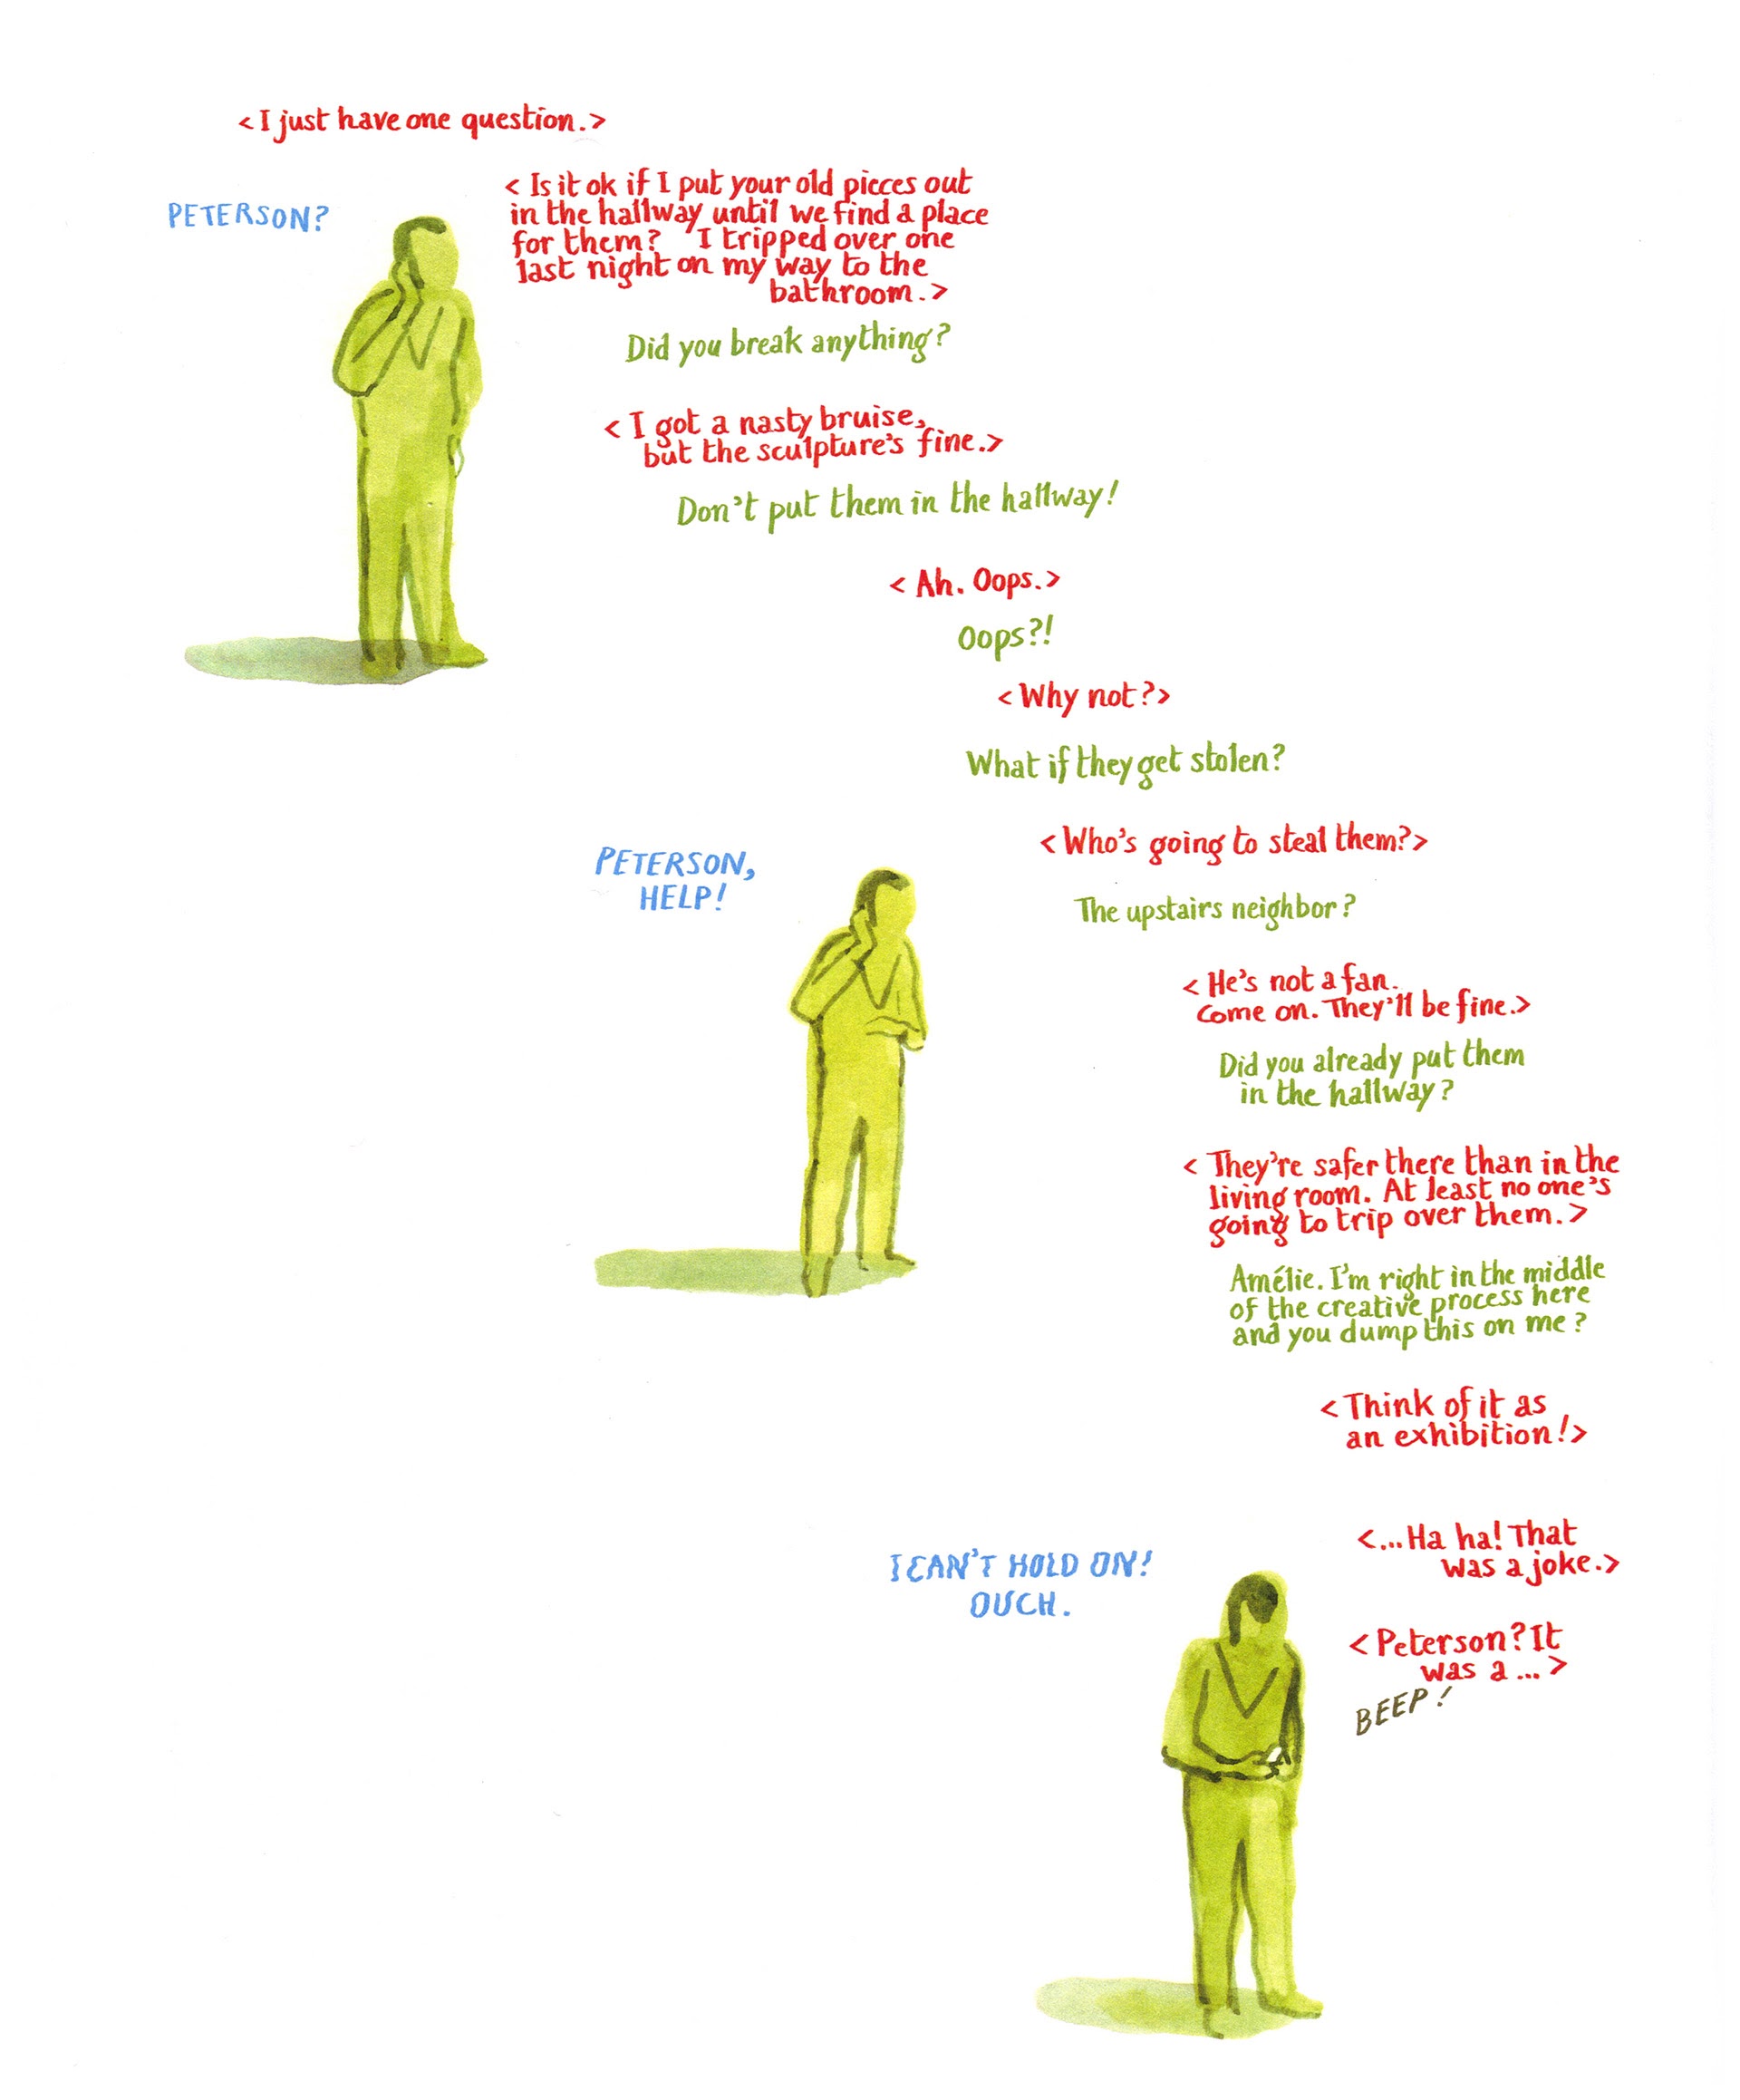 < I just have one question. >
PETERSON?
< Is it ok if I put your old pieces out
in the hallway until we find a place
for them? I tripped over one
last night on my way to the
bathroom. >
Did you break anything?
< I got a nasty bruise,
but the sculpture's fine. >
Don't put them in the hallway!
< Ah. Oops. >
Oops?!
< Why not? >
What if they get stolen?
< Who's going to steal them? >
PETERSON,
HELP!
The upstairs neighbor?
< He's not a fan.
Come on. They'll be fine. >
Did you already put them
in the hallway?
< They're safer there than in the
living room. At least no one's
going to trip over them. >
Amélie. I'm right in the middle
of the creative process here
and you dump this on me?
< Think of it as
an exhibition! >
< ...Ha ha! That
was a joke. >
I CAN'T HOLD ON!
OUCH.
< Peterson? It
was a ... >
BEEP!